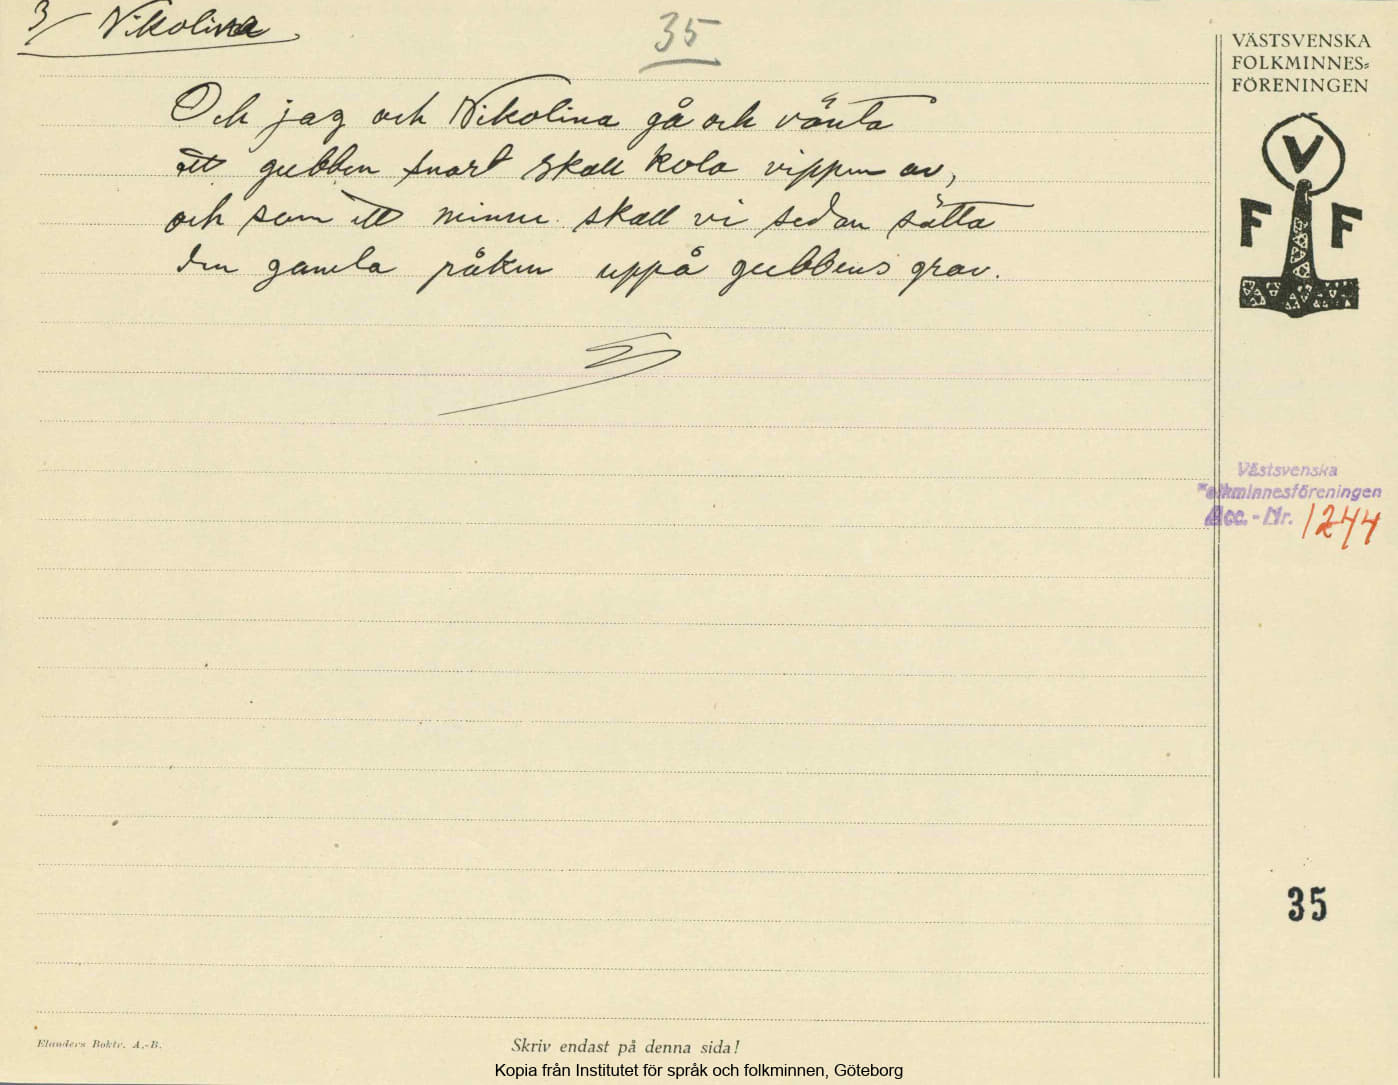 3/ Nikolina
35
Och jag och Nikolina gå och vänta
att gubben snart skall kola vippen av,
och som ett minne skall vi sedan sätta
den gamla påken uppå gubbens grav.
VÄSTSVENSKA
FOLKMINNES-
FÖRENINGEN
V
F F
Västsvenska
Folkminnesföreningen
Acc.-Nr. 1244
35
Elanders Boktr. A.-B.
Skriv endast på denna sida!
Kopia från Institutet för språk och folkminnen, Göteborg